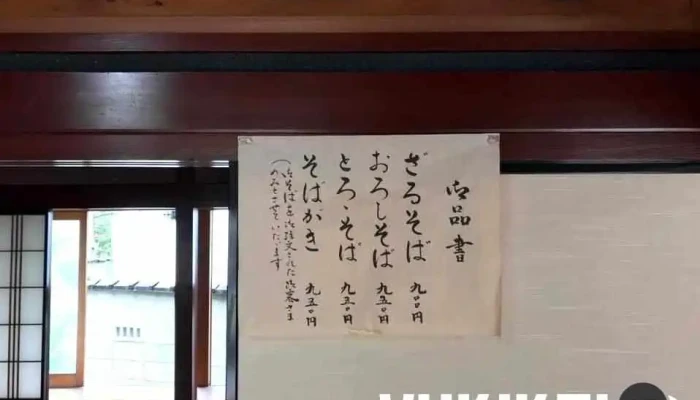 御品書
ざるそば 九〇〇円
おろしそば 九五〇円
とろゝそば 九五〇円
そばがき 九五〇円
(冷そばを御注文された御客さま
のみとさせていたゞきます